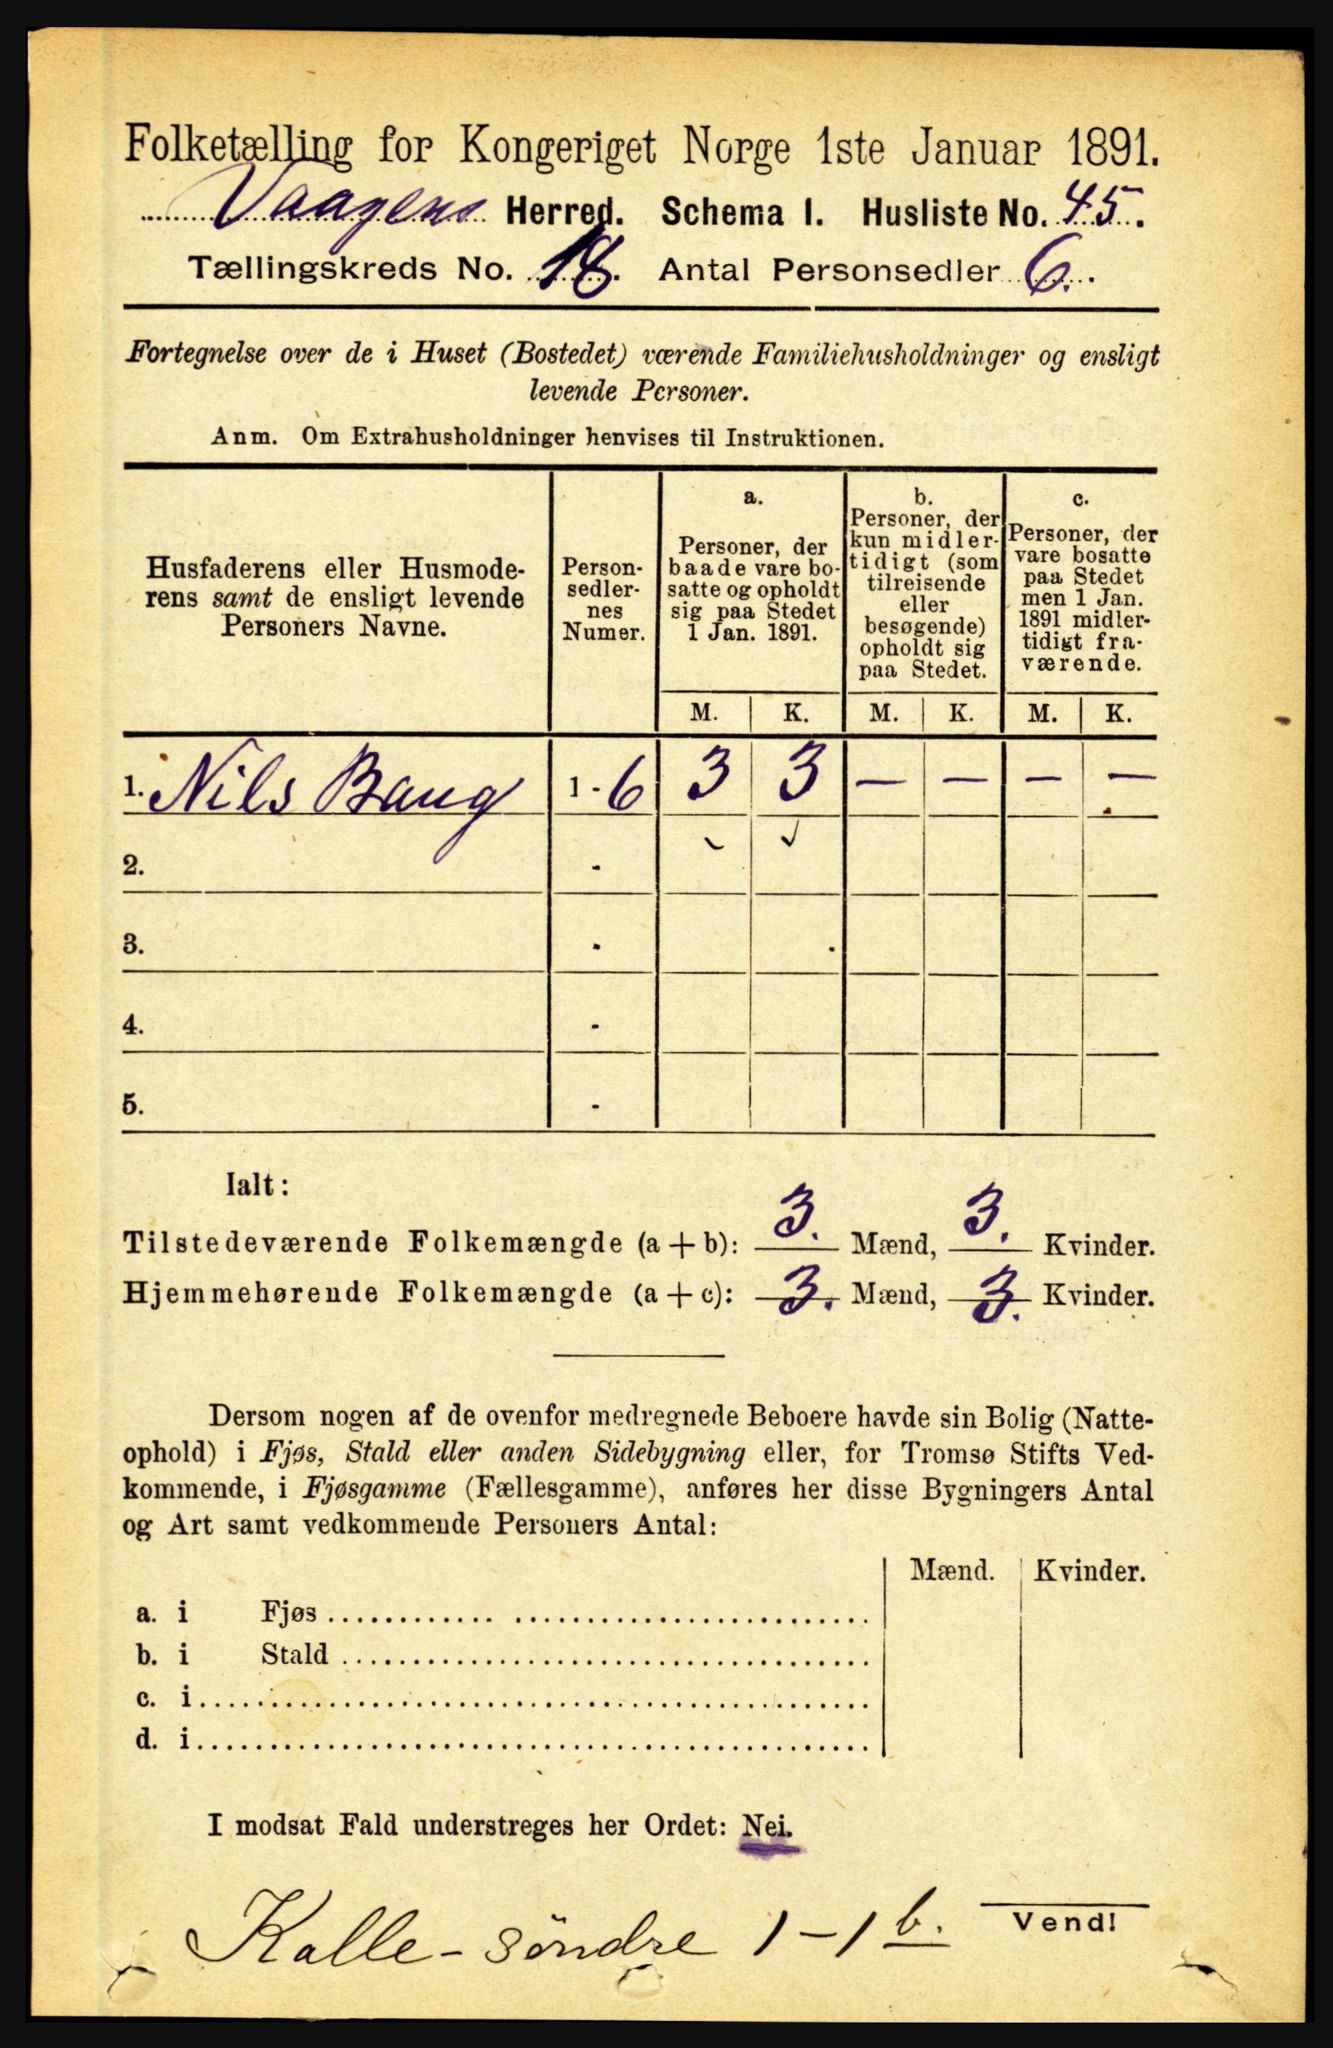 Folketælling for Kongeriget Norge 1ste Januar 1891.
Vaagens Herred. Schema I. Husliste No. 45.
Tællingskreds No. 18. Antal Personsedler 6.
Fortegnelse over de i Huset (Bostedet) værende Familiehusholdninger og ensligt
levende Personer.
Anm. Om Extrahusholdninger henvises til Instruktionen.
Husfaderens eller Husmode-
rens samt de ensligt levende
Personers Navne.
Person-
sedler-
nes
Numer.
a.
Personer, der
baade vare bo-
satte og opholdt
sig paa Stedet
1 Jan. 1891.
b.
Personer, der
kun midler-
tidigt (som
tilreisende
eller
besøgende)
opholdt sig
paa Stedet.
c.
Personer, der
vare bosatte
paa Stedet
men 1 Jan.
1891 midler-
tidigt fra-
værende.
M. K. M. K. M. K.
1. Nils Baug 1 - 6 3 3 — — — —
2. -
3. -
4. -
5. -
Ialt:
Tilstedeværende Folkemængde (a + b): 3. Mænd, 3. Kvinder.
Hjemmehørende Folkemængde (a + c): 3. Mænd, 3. Kvinder.
Dersom nogen af de ovenfor medregnede Beboere havde sin Bolig (Natte-
ophold) i Fjøs, Stald eller anden Sidebygning eller, for Tromsø Stifts Ved-
kommende, i Fjøsgamme (Fællesgamme), anføres her disse Bygningers Antal
og Art samt vedkommende Personers Antal:
Mænd. Kvinder.
a. i Fjøs
b. i Stald
c. i
d. i
I modsat Fald understreges her Ordet: Nei.
Kalle-söndre 1-1 b.
Vend!